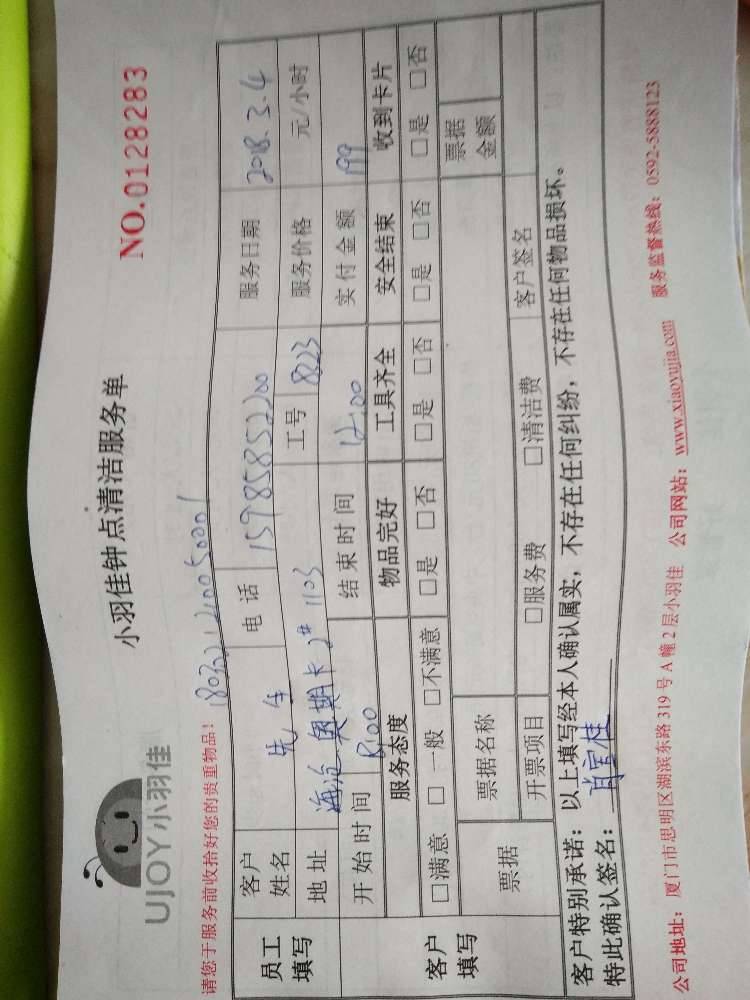 UJOY小羽佳
小羽佳钟点清洁服务单
NO.0128283
请您于服务前收拾好您的贵重物品!
员工填写
客户姓名 先生 电话 15985852200 服务日期 2018.3.4
地址 海沧奥斯卡 2# 1103 工号 8223 服务价格 元/小时
开始时间 8:00 结束时间 12:00 实付金额 199
客户填写
服务态度 物品完好 工具齐全 安全结束 收到卡片
□满意 □一般 □不满意 □是 □否 □是 □否 □是 □否 □是 □否
票据 票据名称 票据金额
开票项目 □服务费 □清洁费 客户签名
客户特别承诺:以上填写经本人确认属实,不存在任何纠纷,不存在任何物品损坏。
特此确认签名:
公司地址:厦门市思明区湖滨东路 319 号 A 幢 2 层小羽佳 公司网站:www.xiaoyujia.com 服务监督热线:0592-5888123